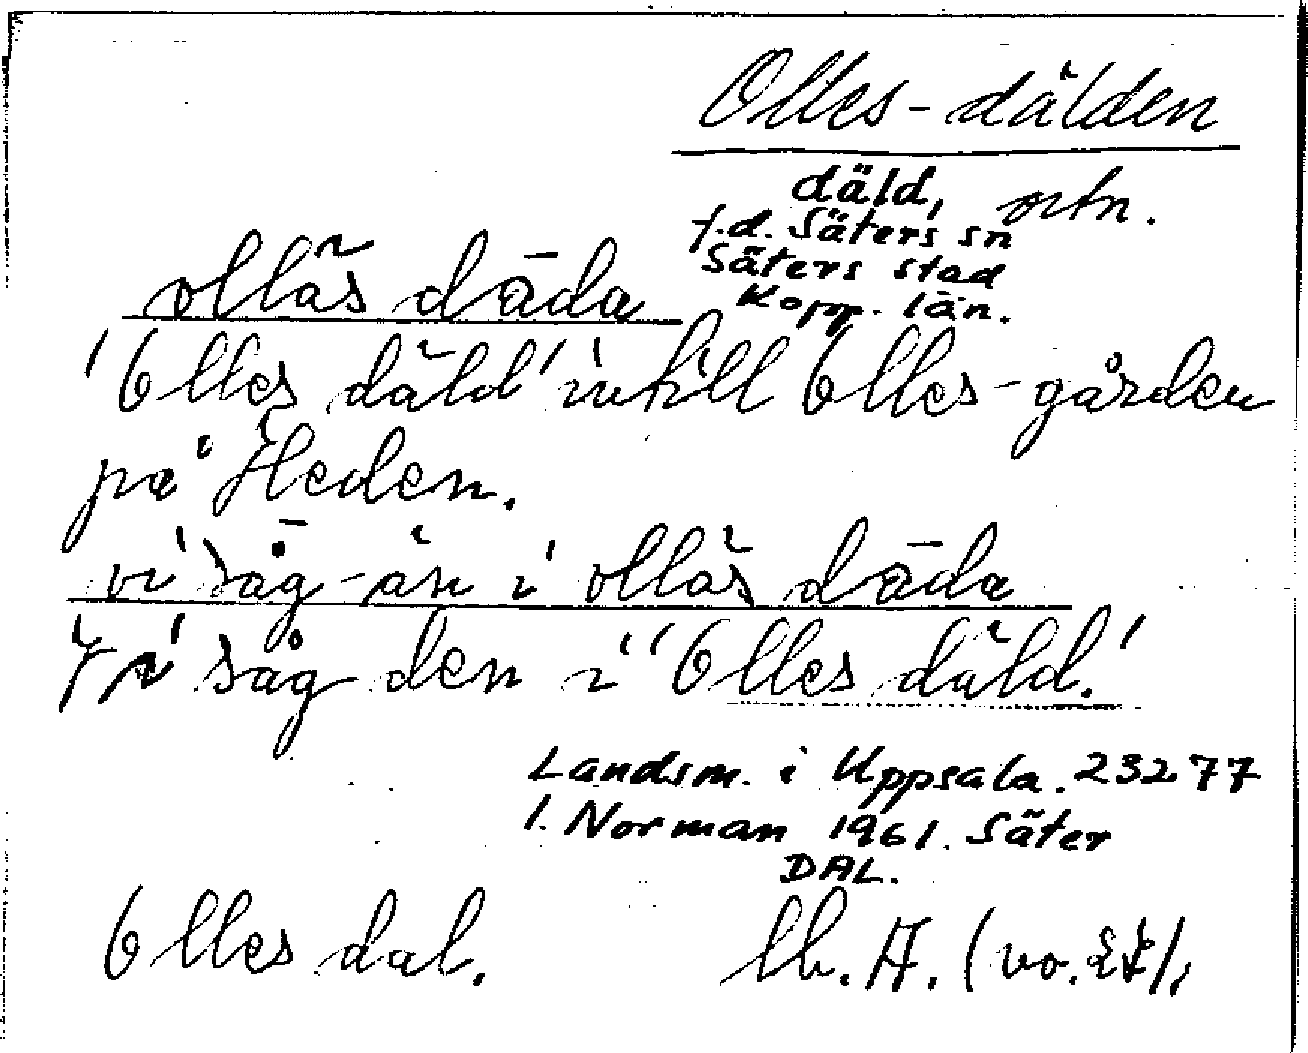 Olles-dälden
däld, ortn.
f.d. Säters sn
Säters stad
Kopp. län.
ollas däda
'Olles däld' intill Olles-gården
på Heden.
vi såg-än i ollas däda
'Vi såg den i "Olles däld.'
Landsm. i Uppsala. 23277
I. Norman 1961. Säter
DAL.
Olles dal. lh. A. (vo.